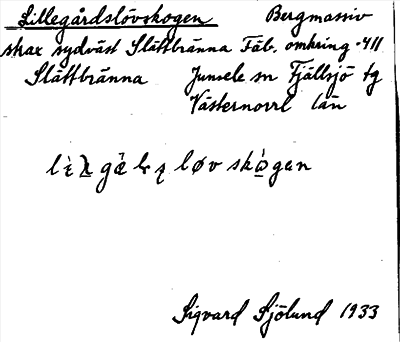 Lillegårdslövskogen Bergmassiv
strax sydväst Slåttbränna Fäb. omkring ·411
Slåttbränna Junsele sn Fjällsjö tg
Västernorrl län
løv skògan
Sigvard Sjölund 1933